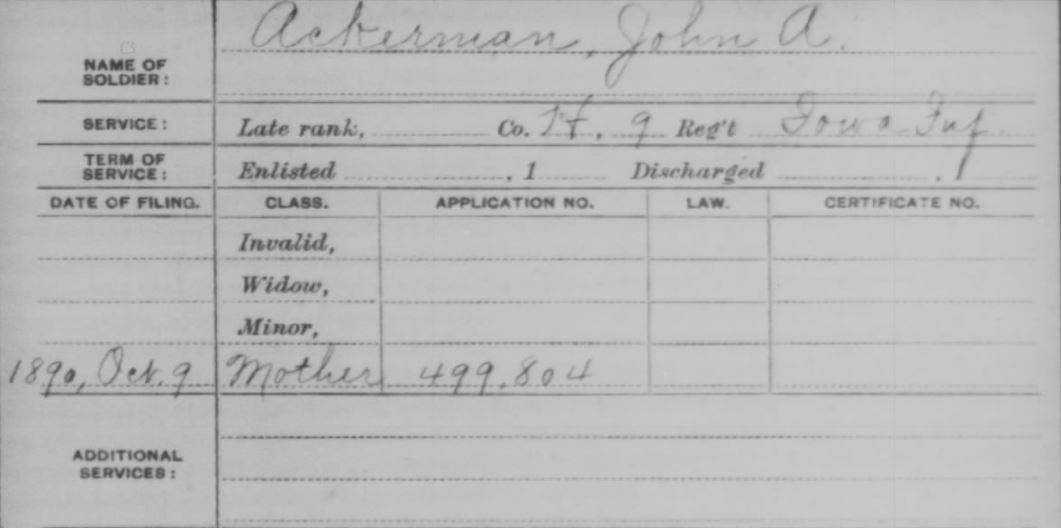 Ackerman, John A.
NAME OF
SOLDIER:
SERVICE: Late rank, Co. H, 9 Reg't Iowa Inf.
TERM OF
SERVICE: Enlisted , 1 Discharged , 1
DATE OF FILING. CLASS. APPLICATION NO. LAW. CERTIFICATE NO.
Invalid,
Widow,
Minor,
1890, Oct. 9 Mother 499,804
ADDITIONAL
SERVICES: